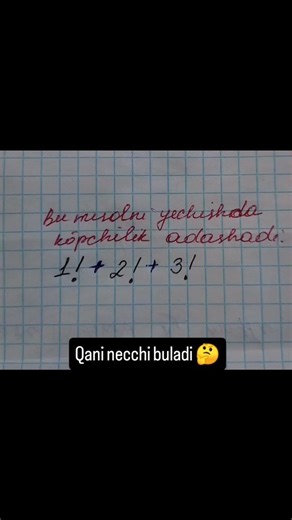 Bu misolni yechishda
köpchilik adashadi.
1! + 2! + 3!
Qani necchi buladi 🤔